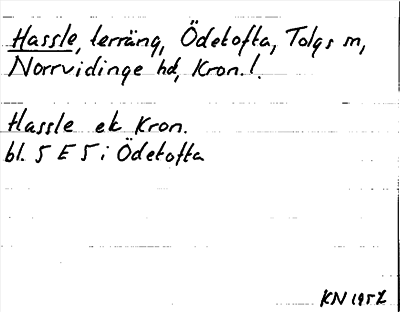 Hassle, terräng, Ödetofta, Tolgs sn,
Norrvidinge hd, Kron. l.
Hassle ek Kron.
bl. 5 E 5 i Ödetofta
KN 1957